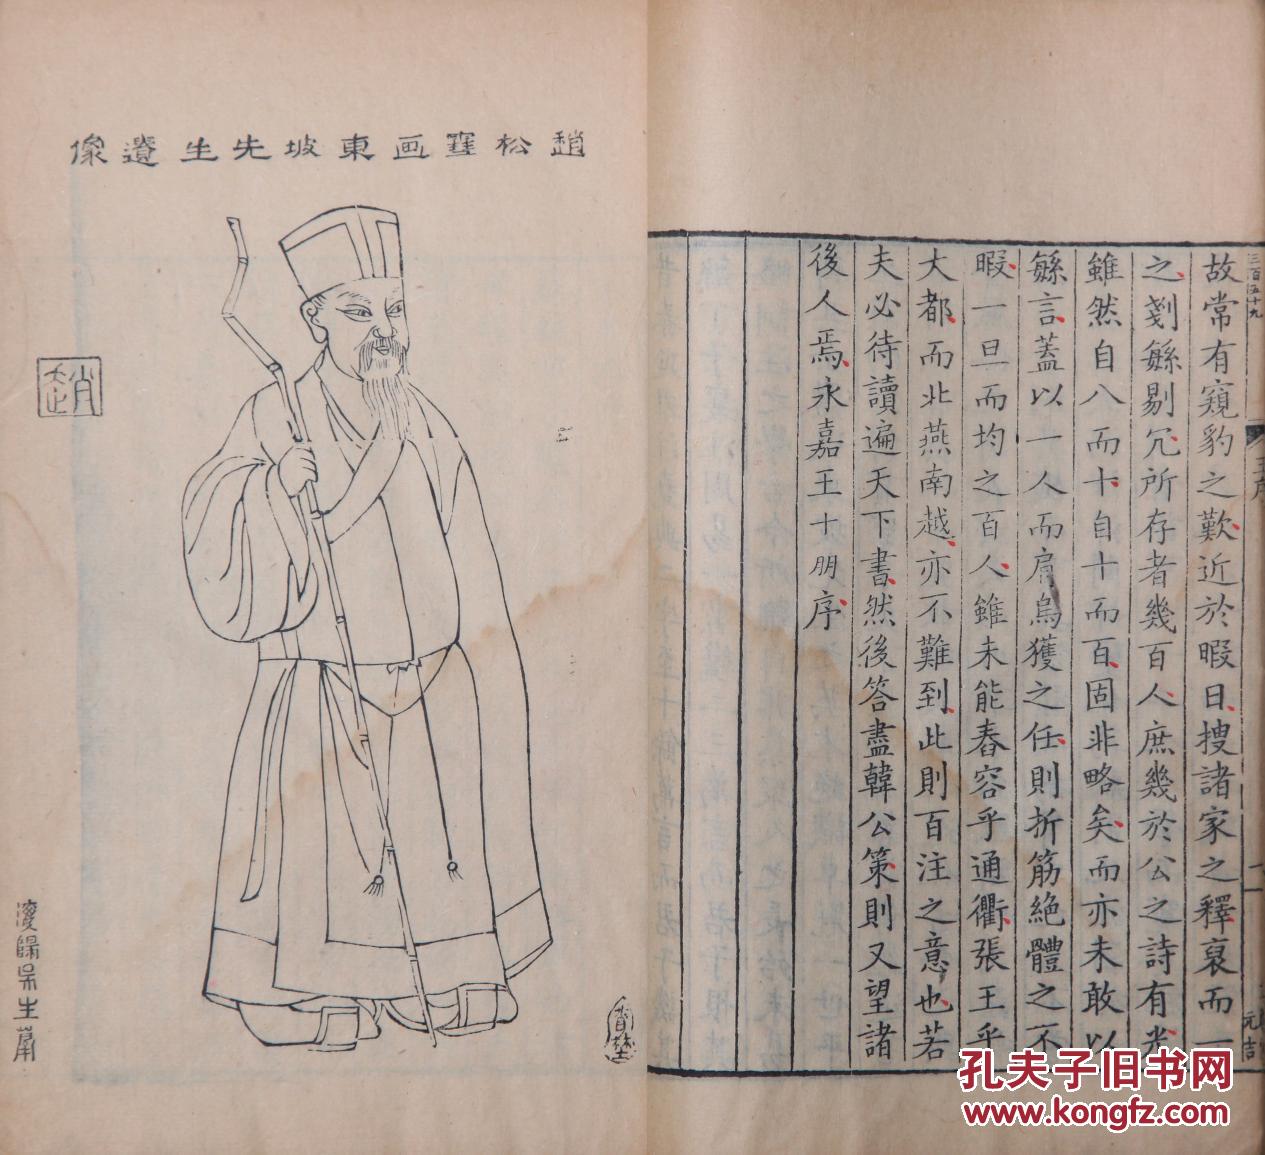 故常有窺豹之歎近於暇日搜諸家之釋裒而一
之剗緐剔冗所存者幾百人庶幾於公之詩有光
雖然自八而十自十而百固非略矣而亦未敢以
緐言蓋以一人而肩烏獲之任則折筋絕體之不
暇一旦而均之百人雖未能舂容乎通衢張王乎
大都而北燕南越亦不難到此則百注之意也若
夫必待讀遍天下書然後答盡韓公策則又望諸
後人焉永嘉王十朋序
三百五十九
王序
元吉
趙松雪画東坡先生遺像
趙
孔夫子旧书网
www.kongfz.com